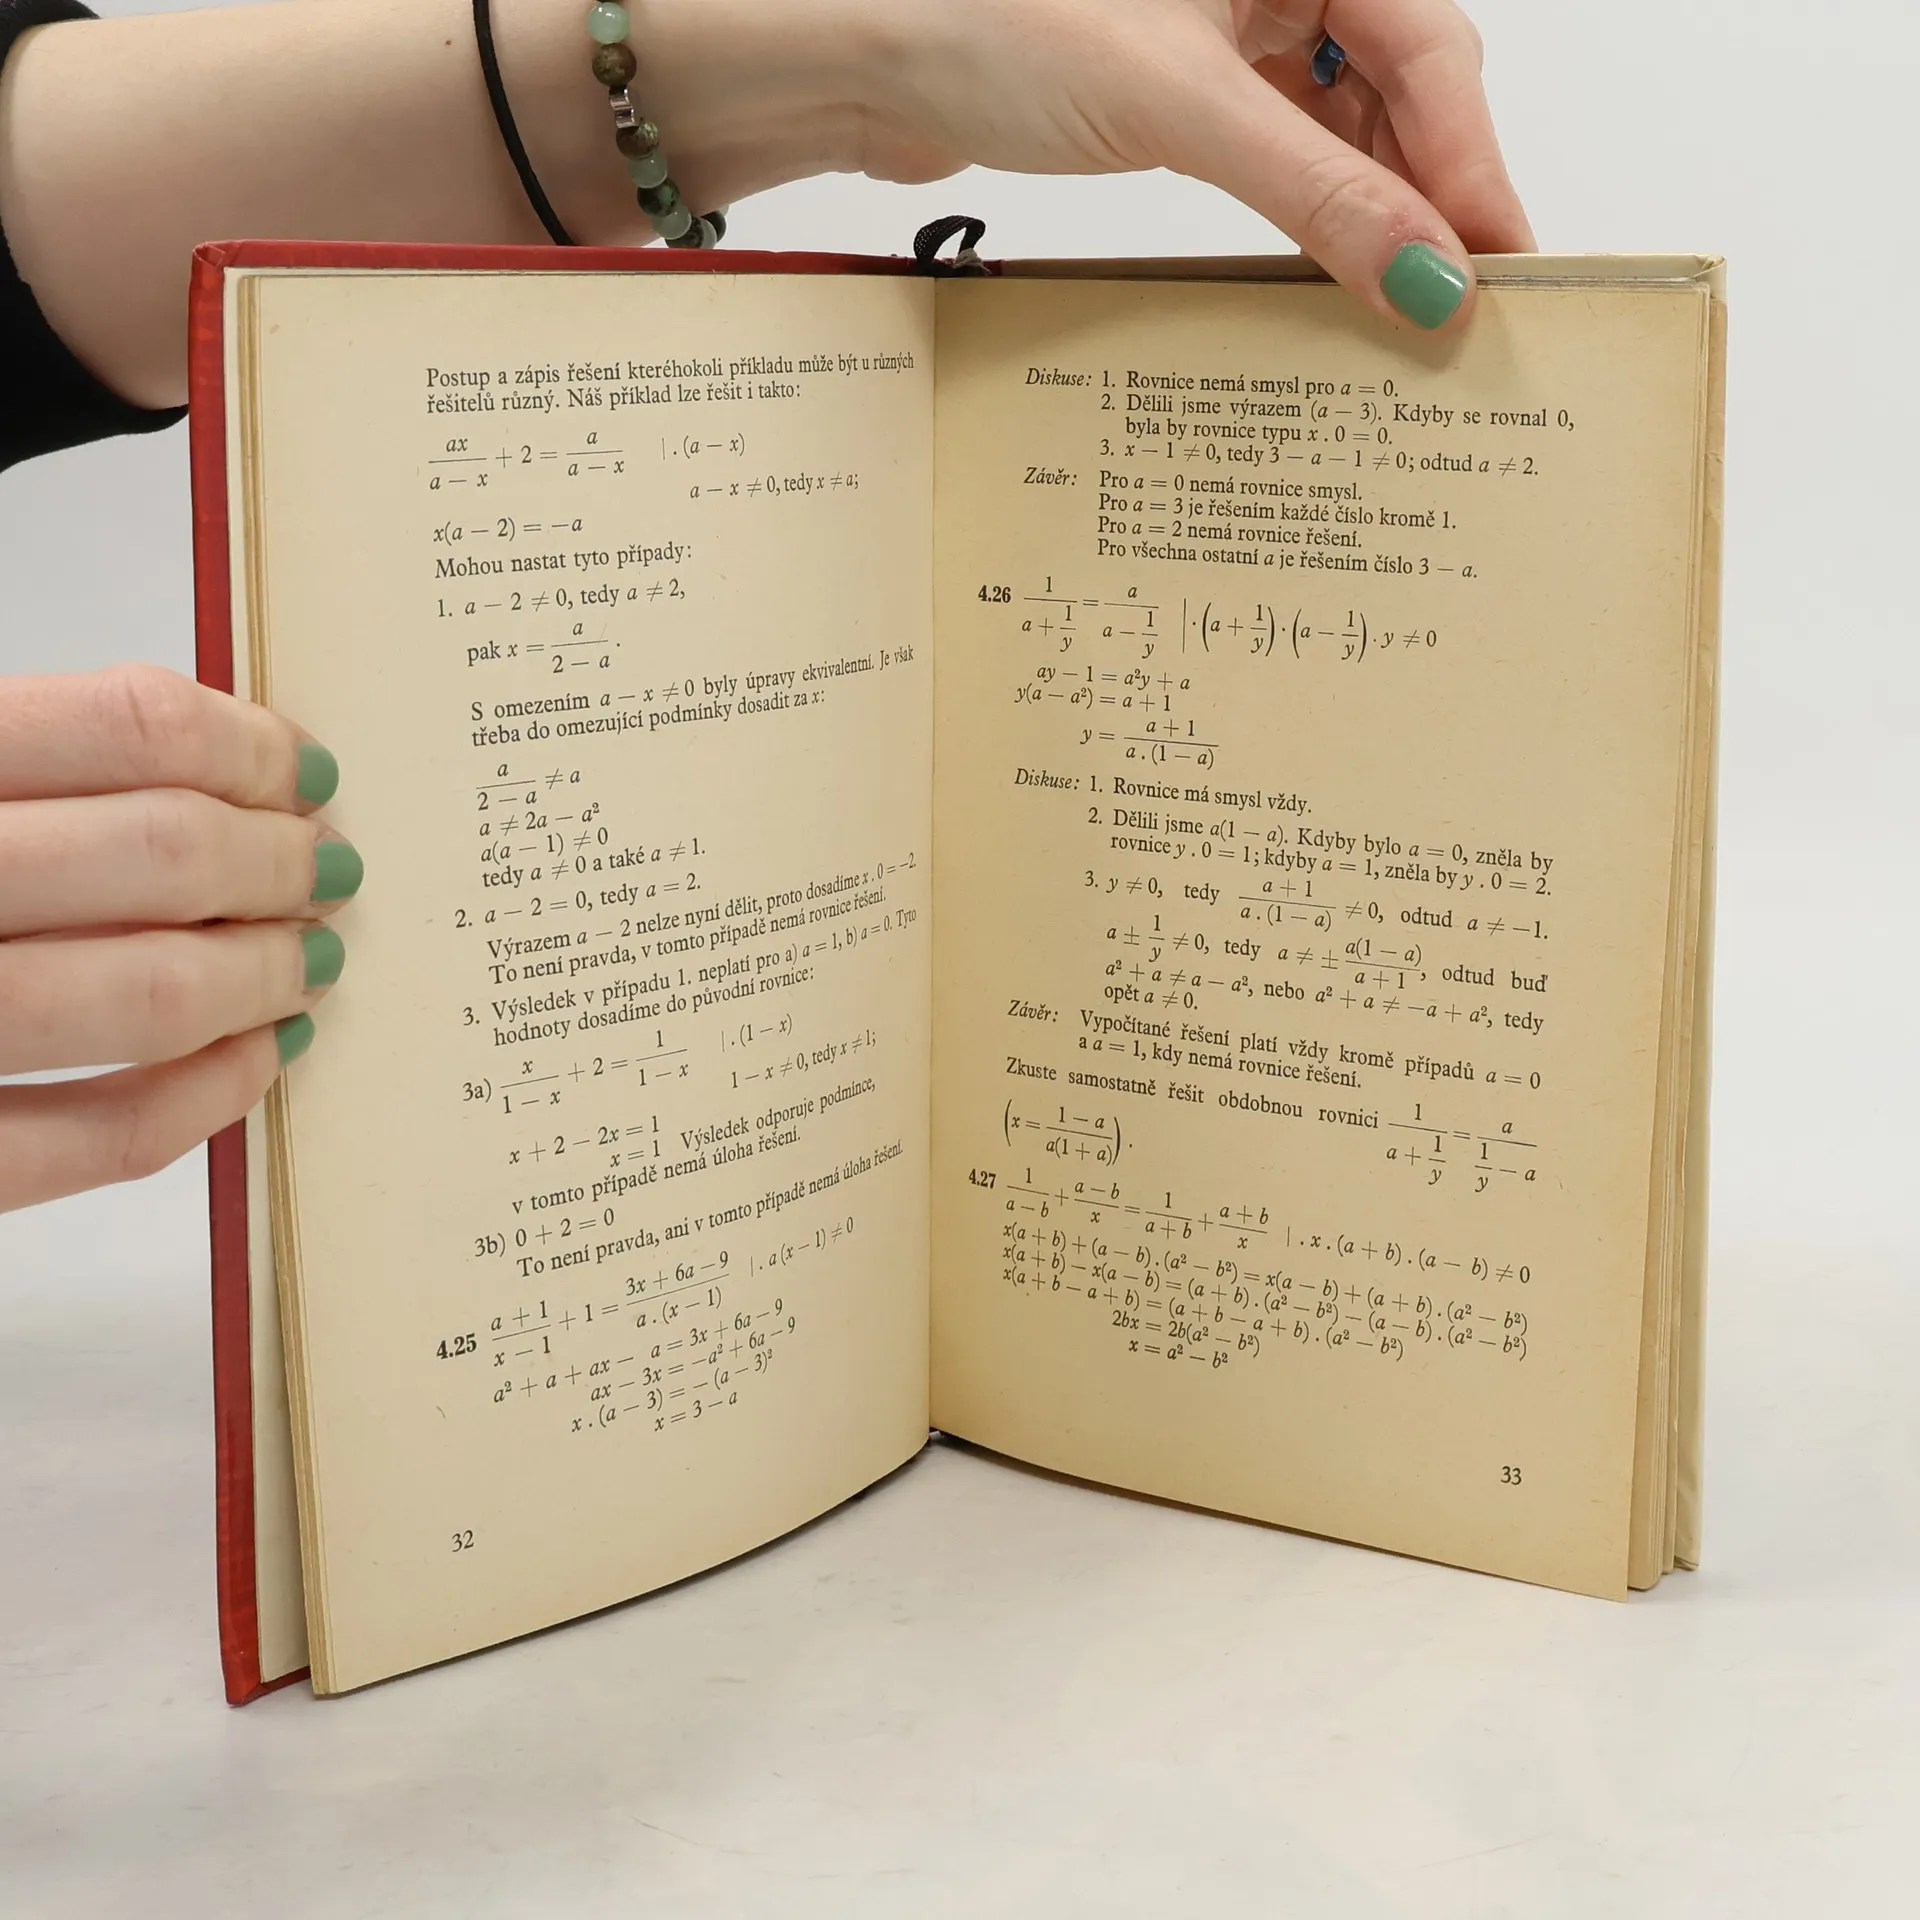 Postup a zápis řešení kteréhokoli příkladu může být u různých
řešitelů různý. Náš příklad lze řešit i takto:
ax/(a − x) + 2 = a/(a − x) | . (a − x)
a − x ≠ 0, tedy x ≠ a;
x(a − 2) = −a
Mohou nastat tyto případy:
1. a − 2 ≠ 0, tedy a ≠ 2,
pak x = a/(2 − a).
S omezením a − x ≠ 0 byly úpravy ekvivalentní. Je však
třeba do omezující podmínky dosadit za x:
a/(2 − a) ≠ a
a ≠ 2a − a²
a(a − 1) ≠ 0
tedy a ≠ 0 a také a ≠ 1.
2. a − 2 = 0, tedy a = 2.
Výrazem a − 2 nelze nyní dělit, proto dosadíme x . 0 = −2.
To není pravda, v tomto případě nemá rovnice řešení.
3. Výsledek v případu 1. neplatí pro a) a = 1, b) a = 0. Tyto
hodnoty dosadíme do původní rovnice:
3a) x/(1 − x) + 2 = 1/(1 − x) | . (1 − x)
1 − x ≠ 0, tedy x ≠ 1;
x + 2 − 2x = 1
x = 1 Výsledek odporuje podmínce,
v tomto případě nemá úloha řešení.
3b) 0 + 2 = 0
To není pravda, ani v tomto případě nemá úloha řešení.
4.25 (a + 1)/(x − 1) + 1 = (3x + 6a − 9)/(a . (x − 1)) | . a (x − 1) ≠ 0
a² + a + ax − a = 3x + 6a − 9
ax − 3x = −a² + 6a − 9
x . (a − 3) = − (a − 3)²
x = 3 − a
32
Diskuse: 1. Rovnice nemá smysl pro a = 0.
2. Dělili jsme výrazem (a − 3). Kdyby se rovnal 0,
byla by rovnice typu x . 0 = 0.
3. x − 1 ≠ 0, tedy 3 − a − 1 ≠ 0; odtud a ≠ 2.
Závěr: Pro a = 0 nemá rovnice smysl.
Pro a = 3 je řešením každé číslo kromě 1.
Pro a = 2 nemá rovnice řešení.
Pro všechna ostatní a je řešením číslo 3 − a.
4.26 1/(a + 1/y) = a/(a − 1/y) | . (a + 1/y) . (a − 1/y) . y ≠ 0
ay − 1 = a²y + a
y(a − a²) = a + 1
y = (a + 1)/(a . (1 − a))
Diskuse: 1. Rovnice má smysl vždy.
2. Dělili jsme a(1 − a). Kdyby bylo a = 0, zněla by
rovnice y . 0 = 1; kdyby a = 1, zněla by y . 0 = 2.
3. y ≠ 0, tedy (a + 1)/(a . (1 − a)) ≠ 0, odtud a ≠ −1.
a ± 1/y ≠ 0, tedy a ≠ ± a(1 − a)/(a + 1), odtud buď
a² + a ≠ a − a², nebo a² + a ≠ −a + a², tedy
opět a ≠ 0.
Závěr: Vypočítané řešení platí vždy kromě případů a = 0
a a = 1, kdy nemá rovnice řešení.
Zkuste samostatně řešit obdobnou rovnici 1/(a + 1/y) = a/(1/y − a)
(x = (1 − a)/(a(1 + a))).
4.27 1/(a − b) + (a − b)/x = 1/(a + b) + (a + b)/x | . x . (a + b) . (a − b) ≠ 0
x(a + b) + (a − b) . (a² − b²) = x(a − b) + (a + b) . (a² − b²)
x(a + b) − x(a − b) = (a + b) . (a² − b²) − (a − b) . (a² − b²)
x(a + b − a + b) = (a + b − a + b) . (a² − b²)
2bx = 2b(a² − b²)
x = a² − b²
33